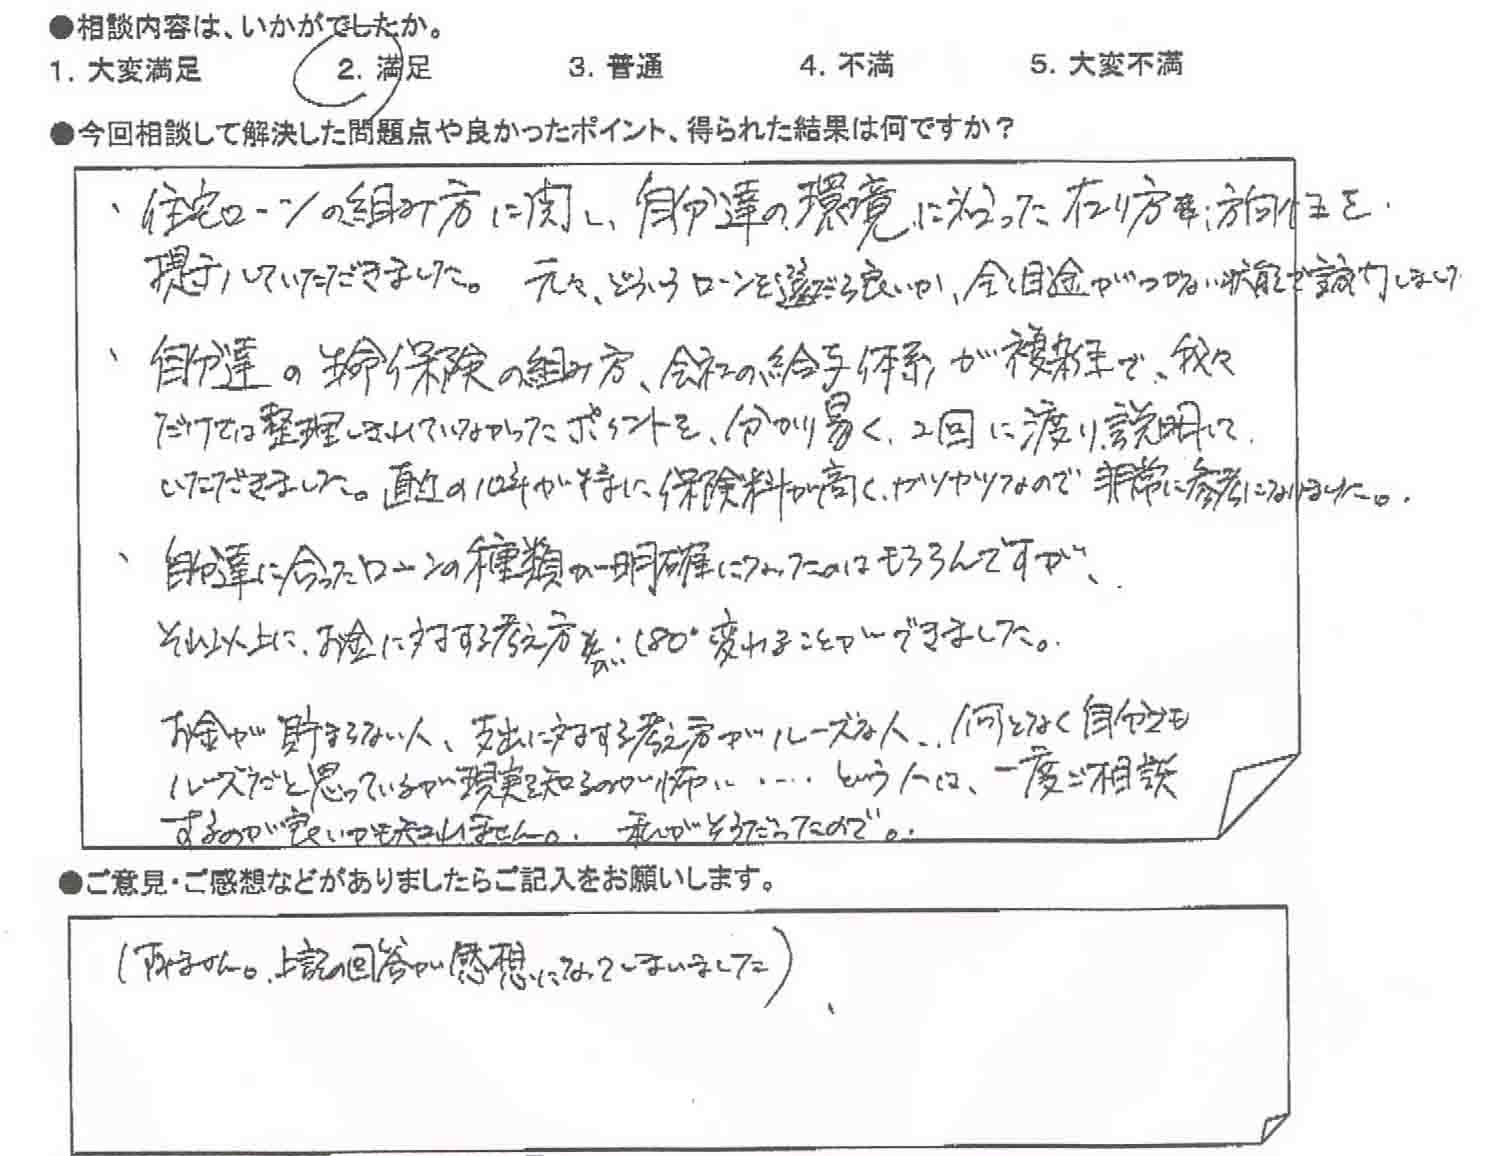 ●相談内容は、いかがでしたか。
1. 大変満足 2. 満足 3. 普通 4. 不満 5. 大変不満
●今回相談して解決した問題点や良かったポイント、得られた結果は何ですか？
、住宅ローンの組み方に関し、自分達の環境に沿った在り方、方向付けを
提示していただきました。元々、どういうローンを選だら良いか、全く目途がつかない状態で
、自分達の生命保険の組み方、会社の給与体系が複雑で、我々
だけでは整理しきれていなかったポイントを、分かり易く、2回に渡り、説明して
いただきました。直近の10年が特に保険料が高く、ガツガツなので非常に参考になりました。
、自分達に合ったローンの種類が明確になったのはもちろんですが、
それ以上に、お金に対する考え方が180°変わることができました。
お金が貯まらない人、支出に対する考え方がルーズな人、何となく自分でも
ルーズだと思っているが現実を知るのが怖い・・・・という人は、一度ご相談
するのが良いかも知れません。私がそうだったので。
●ご意見・ご感想などがありましたらご記入をお願いします。
(すみません。上記の回答が感想になってしまいました)